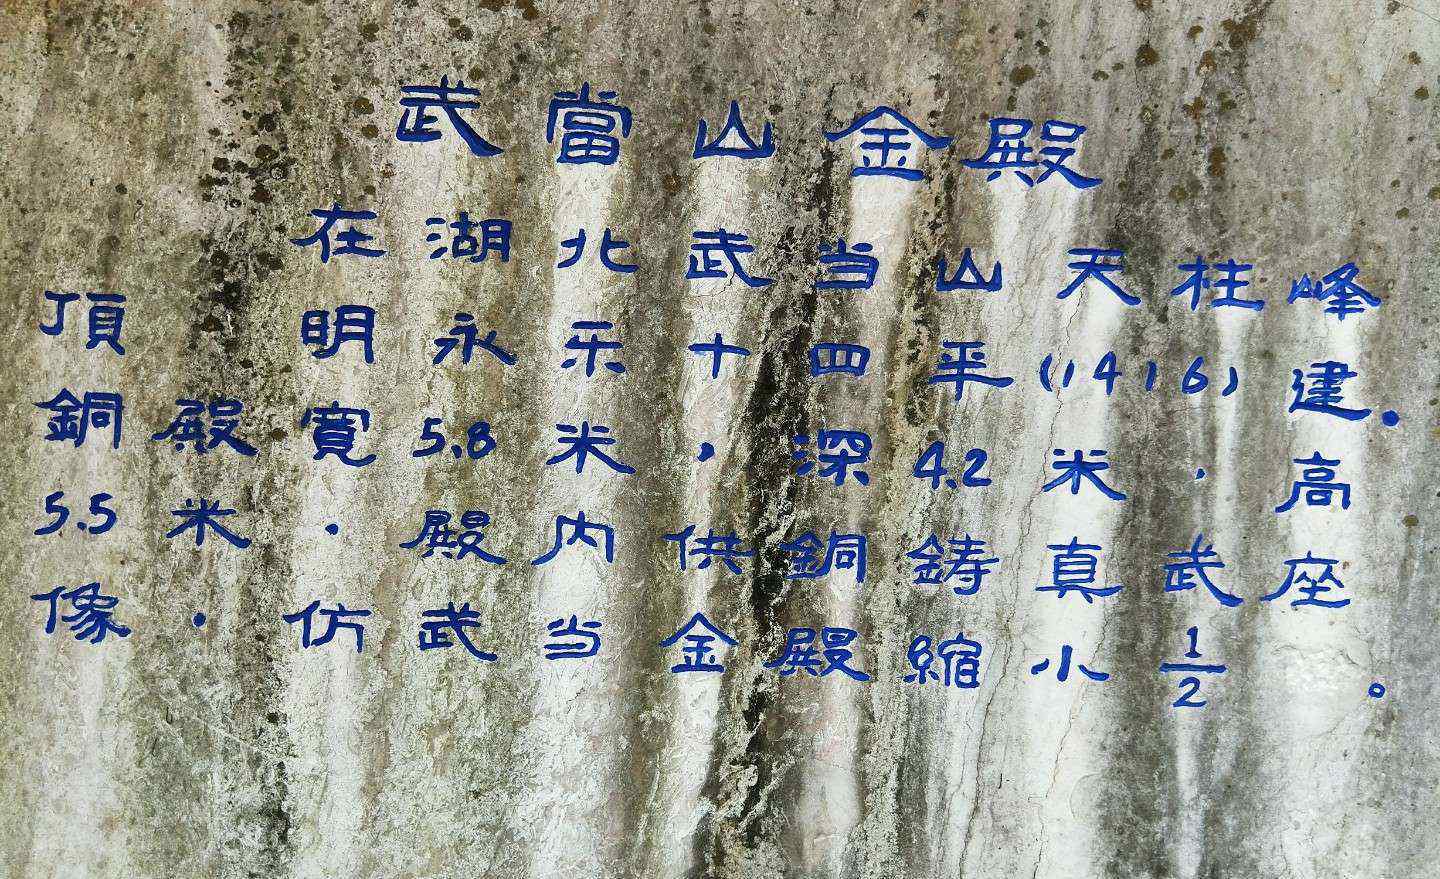 武當山金殿
在湖北武当山天柱峰
頂明永乐十四年(1416)建.
銅殿寬5.8米,深4.2米,高
5.5米.殿内供銅鋳真武座
像.仿武当金殿縮小1/2。